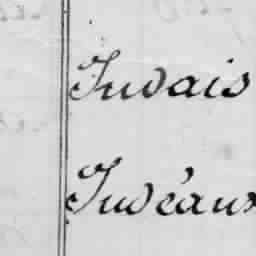 Juvais
Juvéaux